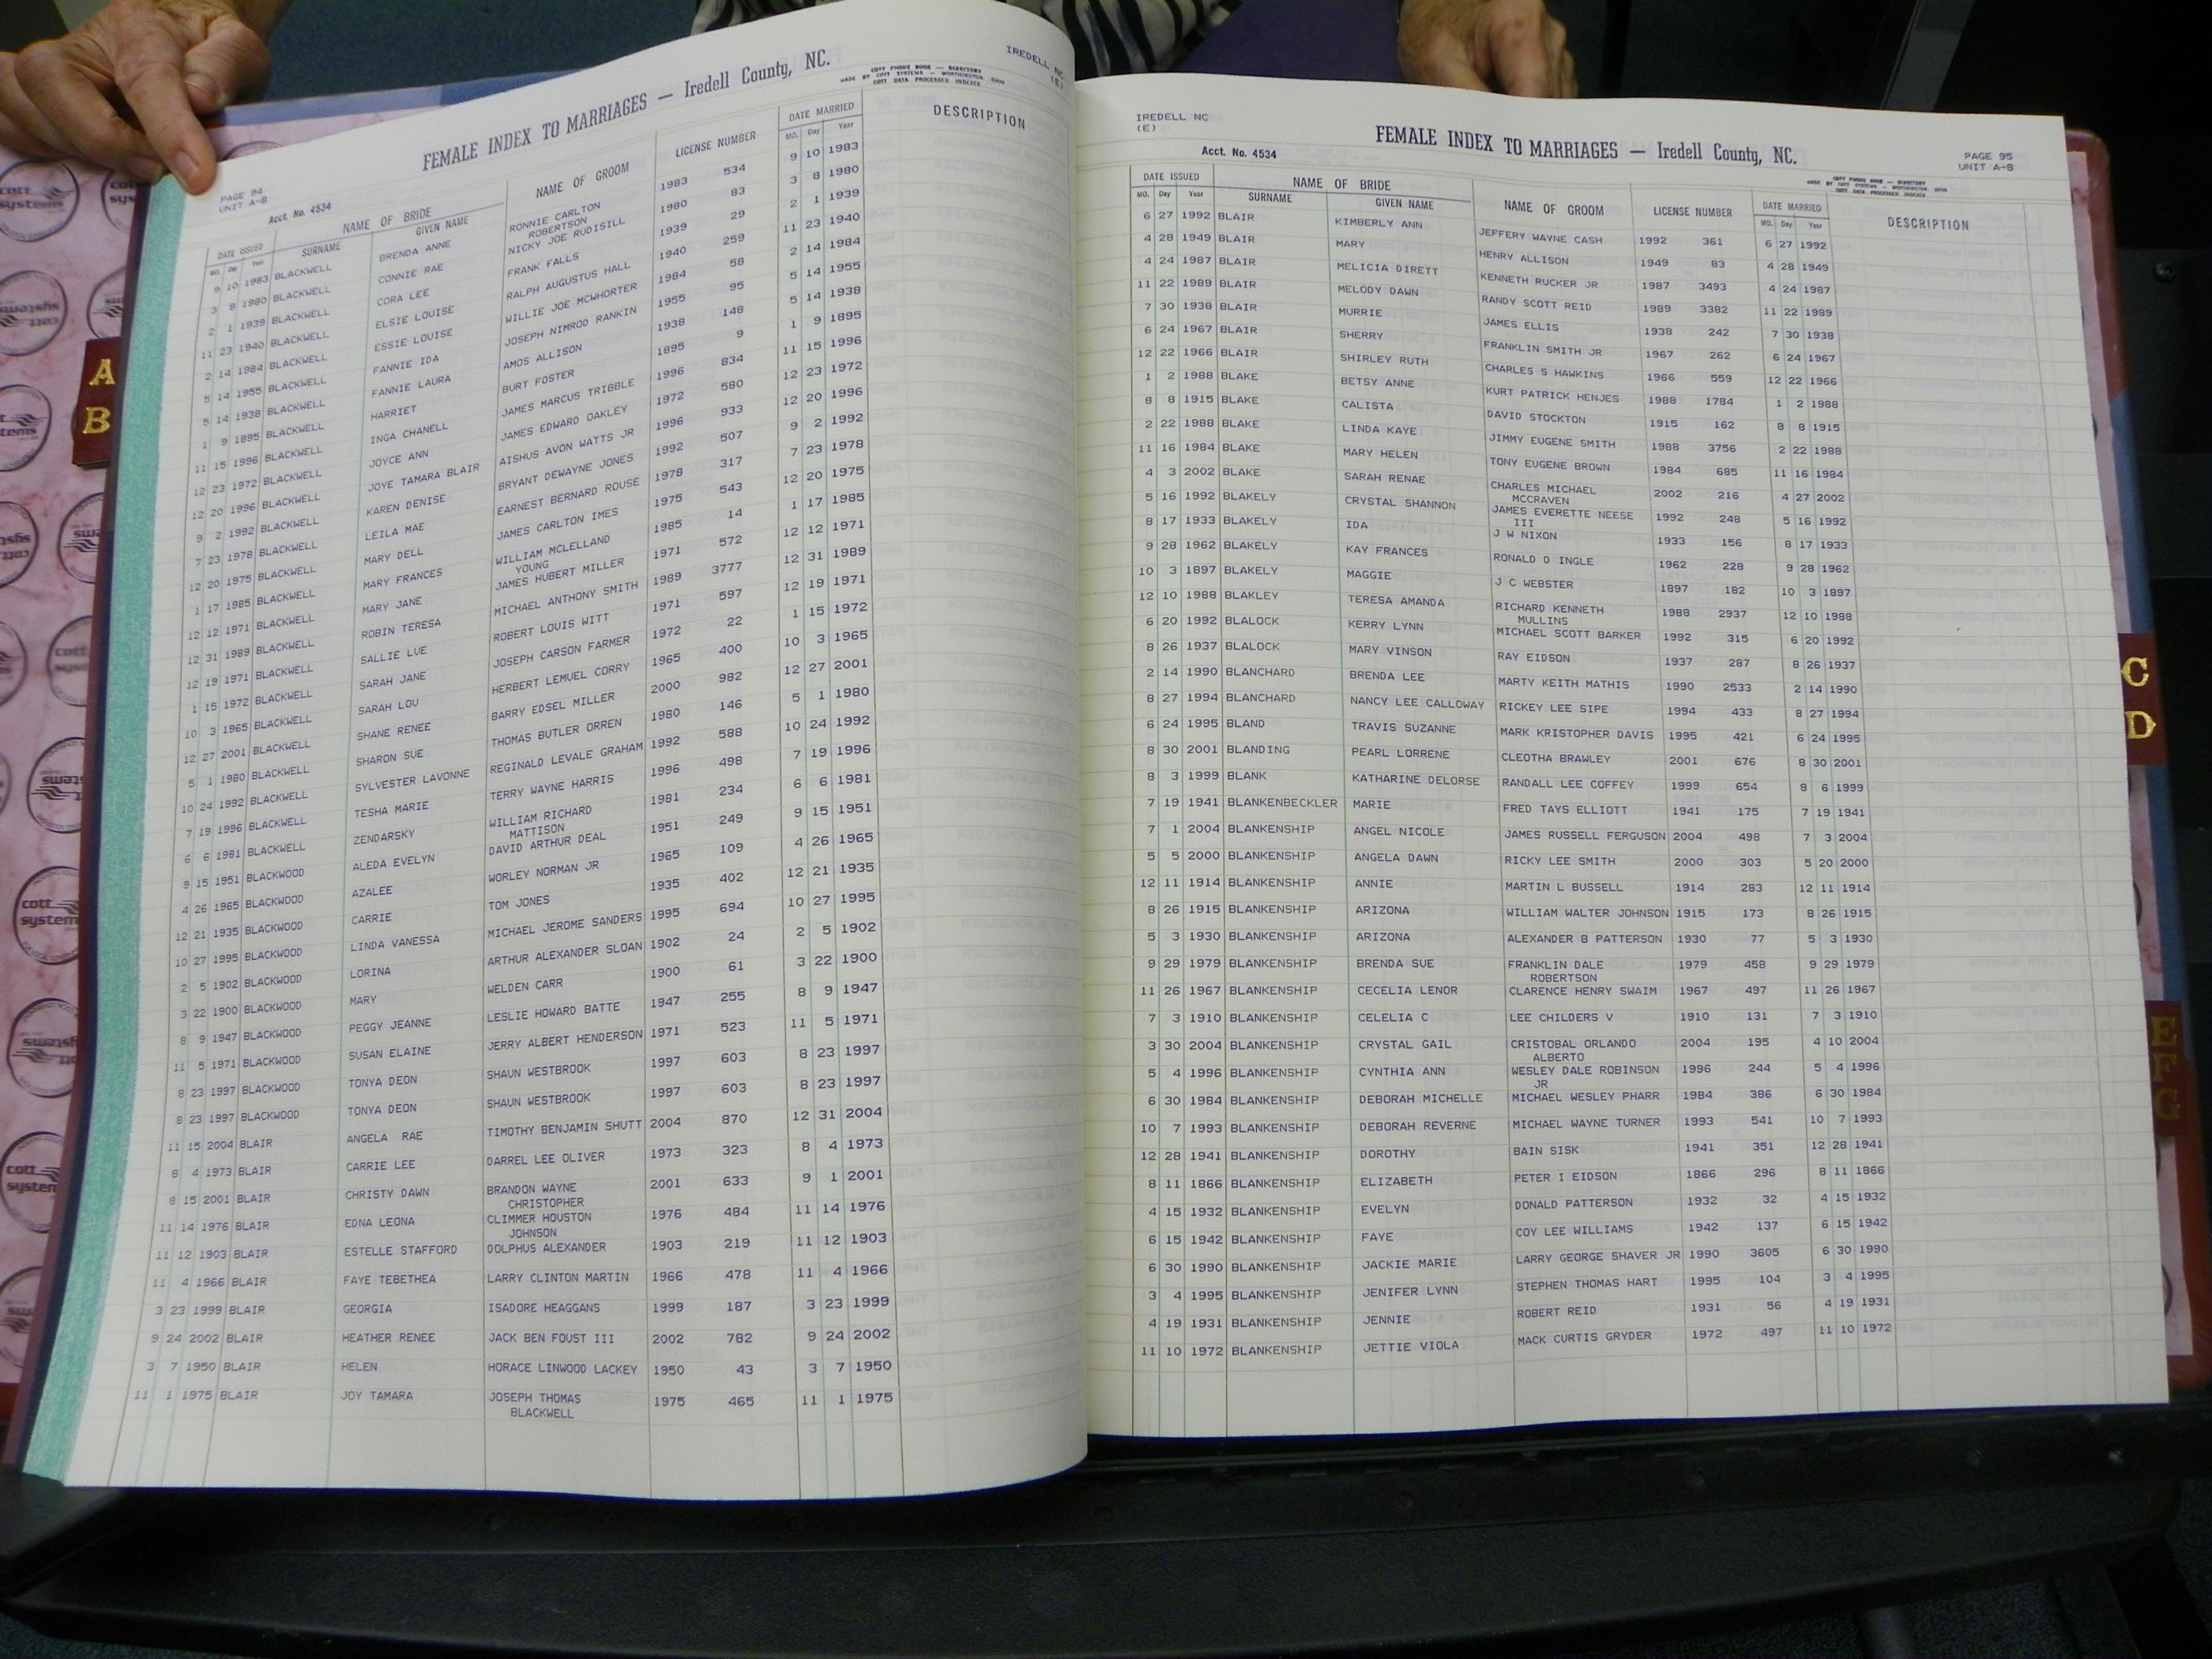 PAGE 94
UNIT A-B
Acct. No. 4534
FEMALE INDEX TO MARRIAGES — Iredell County, NC.
COTT PHONE BOOK — DIRECTORY
MADE BY COTT SYSTEMS — WORTHINGTON, OHIO
COTT DATA PROCESSED INDEXES
IREDELL NC
(E)
DATE ISSUED NAME OF BRIDE NAME OF GROOM LICENSE NUMBER DATE MARRIED DESCRIPTION
MO. Day Year SURNAME GIVEN NAME MO. Day Year
9 10 1983 BLACKWELL BRENDA ANNE RONNIE CARLTON 1983 534 9 10 1983
ROBERTSON
3 8 1980 BLACKWELL CONNIE RAE NICKY JOE RUDISILL 1980 83 3 8 1980
2 1 1939 BLACKWELL CORA LEE FRANK FALLS 1939 29 2 1 1939
11 23 1940 BLACKWELL ELSIE LOUISE RALPH AUGUSTUS HALL 1940 259 11 23 1940
2 14 1984 BLACKWELL ESSIE LOUISE WILLIE JOE MCWHORTER 1984 58 2 14 1984
5 14 1955 BLACKWELL FANNIE IDA JOSEPH NIMROD RANKIN 1955 95 5 14 1955
5 14 1938 BLACKWELL FANNIE LAURA AMOS ALLISON 1938 148 5 14 1938
1 9 1895 BLACKWELL HARRIET BURT FOSTER 1895 9 1 9 1895
11 15 1996 BLACKWELL INGA CHANELL JAMES MARCUS TRIBBLE 1996 834 11 15 1996
12 23 1972 BLACKWELL JOYCE ANN JAMES EDWARD OAKLEY 1972 580 12 23 1972
12 20 1996 BLACKWELL JOYE TAMARA BLAIR AISHUS AVON WATTS JR 1996 933 12 20 1996
9 2 1992 BLACKWELL KAREN DENISE BRYANT DEWAYNE JONES 1992 507 9 2 1992
7 23 1978 BLACKWELL LEILA MAE EARNEST BERNARD ROUSE 1978 317 7 23 1978
12 20 1975 BLACKWELL MARY DELL JAMES CARLTON IMES 1975 543 12 20 1975
1 17 1985 BLACKWELL MARY FRANCES WILLIAM MCLELLAND 1985 14 1 17 1985
YOUNG
12 12 1971 BLACKWELL MARY JANE JAMES HUBERT MILLER 1971 572 12 12 1971
12 31 1989 BLACKWELL ROBIN TERESA MICHAEL ANTHONY SMITH 1989 3777 12 31 1989
12 19 1971 BLACKWELL SALLIE LUE ROBERT LOUIS WITT 1971 597 12 19 1971
1 15 1972 BLACKWELL SARAH JANE JOSEPH CARSON FARMER 1972 22 1 15 1972
10 3 1965 BLACKWELL SARAH LOU HERBERT LEMUEL CORRY 1965 400 10 3 1965
12 27 2001 BLACKWELL SHANE RENEE BARRY EDSEL MILLER 2000 982 12 27 2001
5 1 1980 BLACKWELL SHARON SUE THOMAS BUTLER ORREN 1980 146 5 1 1980
10 24 1992 BLACKWELL SYLVESTER LAVONNE REGINALD LEVALE GRAHAM 1992 588 10 24 1992
7 19 1996 BLACKWELL TESHA MARIE TERRY WAYNE HARRIS 1996 498 7 19 1996
6 6 1981 BLACKWELL ZENDARSKY WILLIAM RICHARD 1981 234 6 6 1981
MATTISON
9 15 1951 BLACKWOOD ALEDA EVELYN DAVID ARTHUR DEAL 1951 249 9 15 1951
4 26 1965 BLACKWOOD AZALEE WORLEY NORMAN JR 1965 109 4 26 1965
12 21 1935 BLACKWOOD CARRIE TOM JONES 1935 402 12 21 1935
10 27 1995 BLACKWOOD LINDA VANESSA MICHAEL JEROME SANDERS 1995 694 10 27 1995
2 5 1902 BLACKWOOD LORINA ARTHUR ALEXANDER SLOAN 1902 24 2 5 1902
3 22 1900 BLACKWOOD MARY WELDEN CARR 1900 61 3 22 1900
8 9 1947 BLACKWOOD PEGGY JEANNE LESLIE HOWARD BATTE 1947 255 8 9 1947
11 5 1971 BLACKWOOD SUSAN ELAINE JERRY ALBERT HENDERSON 1971 523 11 5 1971
8 23 1997 BLACKWOOD TONYA DEON SHAUN WESTBROOK 1997 603 8 23 1997
8 23 1997 BLACKWOOD TONYA DEON SHAUN WESTBROOK 1997 603 8 23 1997
11 15 2004 BLAIR ANGELA RAE TIMOTHY BENJAMIN SHUTT 2004 870 12 31 2004
8 4 1973 BLAIR CARRIE LEE DARREL LEE OLIVER 1973 323 8 4 1973
8 15 2001 BLAIR CHRISTY DAWN BRANDON WAYNE 2001 633 9 1 2001
CHRISTOPHER
11 14 1976 BLAIR EDNA LEONA CLIMMER HOUSTON 1976 484 11 14 1976
JOHNSON
11 12 1903 BLAIR ESTELLE STAFFORD DOLPHUS ALEXANDER 1903 219 11 12 1903
11 4 1966 BLAIR FAYE TEBETHEA LARRY CLINTON MARTIN 1966 478 11 4 1966
3 23 1999 BLAIR GEORGIA ISADORE HEAGGANS 1999 187 3 23 1999
9 24 2002 BLAIR HEATHER RENEE JACK BEN FOUST III 2002 782 9 24 2002
3 7 1950 BLAIR HELEN HORACE LINWOOD LACKEY 1950 43 3 7 1950
11 1 1975 BLAIR JOY TAMARA JOSEPH THOMAS 1975 465 11 1 1975
BLACKWELL
IREDELL NC
(E)
Acct. No. 4534
FEMALE INDEX TO MARRIAGES — Iredell County, NC.
PAGE 95
UNIT A-B
COTT PHONE BOOK — DIRECTORY
MADE BY COTT SYSTEMS — WORTHINGTON, OHIO
COTT DATA PROCESSED INDEXES
DATE ISSUED NAME OF BRIDE NAME OF GROOM LICENSE NUMBER DATE MARRIED DESCRIPTION
MO. Day Year SURNAME GIVEN NAME MO. Day Year
6 27 1992 BLAIR KIMBERLY ANN JEFFERY WAYNE CASH 1992 361 6 27 1992
4 28 1949 BLAIR MARY HENRY ALLISON 1949 83 4 28 1949
4 24 1987 BLAIR MELICIA DIRETT KENNETH RUCKER JR 1987 3493 4 24 1987
11 22 1989 BLAIR MELODY DAWN RANDY SCOTT REID 1989 3382 11 22 1989
7 30 1938 BLAIR MURRIE JAMES ELLIS 1938 242 7 30 1938
6 24 1967 BLAIR SHERRY FRANKLIN SMITH JR 1967 262 6 24 1967
12 22 1966 BLAIR SHIRLEY RUTH CHARLES S HAWKINS 1966 559 12 22 1966
1 2 1988 BLAKE BETSY ANNE KURT PATRICK HENJES 1988 1784 1 2 1988
8 8 1915 BLAKE CALISTA DAVID STOCKTON 1915 162 8 8 1915
2 22 1988 BLAKE LINDA KAYE JIMMY EUGENE SMITH 1988 3756 2 22 1988
11 16 1984 BLAKE MARY HELEN TONY EUGENE BROWN 1984 685 11 16 1984
4 3 2002 BLAKE SARAH RENAE CHARLES MICHAEL 2002 216 4 27 2002
MCCRAVEN
5 16 1992 BLAKELY CRYSTAL SHANNON JAMES EVERETTE NEESE 1992 248 5 16 1992
III
8 17 1933 BLAKELY IDA J W NIXON 1933 156 8 17 1933
9 28 1962 BLAKELY KAY FRANCES RONALD D INGLE 1962 228 9 28 1962
10 3 1897 BLAKELY MAGGIE J C WEBSTER 1897 182 10 3 1897
12 10 1988 BLAKLEY TERESA AMANDA RICHARD KENNETH 1988 2937 12 10 1988
MULLINS
6 20 1992 BLALOCK KERRY LYNN MICHAEL SCOTT BARKER 1992 315 6 20 1992
8 26 1937 BLALOCK MARY VINSON RAY EIDSON 1937 287 8 26 1937
2 14 1990 BLANCHARD BRENDA LEE MARTY KEITH MATHIS 1990 2533 2 14 1990
8 27 1994 BLANCHARD NANCY LEE CALLOWAY RICKEY LEE SIPE 1994 433 8 27 1994
6 24 1995 BLAND TRAVIS SUZANNE MARK KRISTOPHER DAVIS 1995 421 6 24 1995
8 30 2001 BLANDING PEARL LORRENE CLEOTHA BRAWLEY 2001 676 8 30 2001
8 3 1999 BLANK KATHARINE DELORSE RANDALL LEE COFFEY 1999 654 8 6 1999
7 19 1941 BLANKENBECKLER MARIE FRED TAYS ELLIOTT 1941 175 7 19 1941
7 1 2004 BLANKENSHIP ANGEL NICOLE JAMES RUSSELL FERGUSON 2004 498 7 3 2004
5 5 2000 BLANKENSHIP ANGELA DAWN RICKY LEE SMITH 2000 303 5 20 2000
12 11 1914 BLANKENSHIP ANNIE MARTIN L BUSSELL 1914 283 12 11 1914
8 26 1915 BLANKENSHIP ARIZONA WILLIAM WALTER JOHNSON 1915 173 8 26 1915
5 3 1930 BLANKENSHIP ARIZONA ALEXANDER B PATTERSON 1930 77 5 3 1930
9 29 1979 BLANKENSHIP BRENDA SUE FRANKLIN DALE 1979 458 9 29 1979
ROBERTSON
11 26 1967 BLANKENSHIP CECELIA LENOR CLARENCE HENRY SWAIM 1967 497 11 26 1967
7 3 1910 BLANKENSHIP CELELIA C LEE CHILDERS V 1910 131 7 3 1910
3 30 2004 BLANKENSHIP CRYSTAL GAIL CRISTOBAL ORLANDO 2004 195 4 10 2004
ALBERTO
5 4 1996 BLANKENSHIP CYNTHIA ANN WESLEY DALE ROBINSON 1996 244 5 4 1996
JR
6 30 1984 BLANKENSHIP DEBORAH MICHELLE MICHAEL WESLEY PHARR 1984 386 6 30 1984
10 7 1993 BLANKENSHIP DEBORAH REVERNE MICHAEL WAYNE TURNER 1993 541 10 7 1993
12 28 1941 BLANKENSHIP DOROTHY BAIN SISK 1941 351 12 28 1941
8 11 1866 BLANKENSHIP ELIZABETH PETER I EIDSON 1866 296 8 11 1866
4 15 1932 BLANKENSHIP EVELYN DONALD PATTERSON 1932 32 4 15 1932
6 15 1942 BLANKENSHIP FAYE COY LEE WILLIAMS 1942 137 6 15 1942
6 30 1990 BLANKENSHIP JACKIE MARIE LARRY GEORGE SHAVER JR 1990 3605 6 30 1990
3 4 1995 BLANKENSHIP JENIFER LYNN STEPHEN THOMAS HART 1995 104 3 4 1995
4 19 1931 BLANKENSHIP JENNIE ROBERT REID 1931 56 4 19 1931
11 10 1972 BLANKENSHIP JETTIE VIOLA MACK CURTIS GRYDER 1972 497 11 10 1972
A
B
C
D
E
F
G
cott
systems